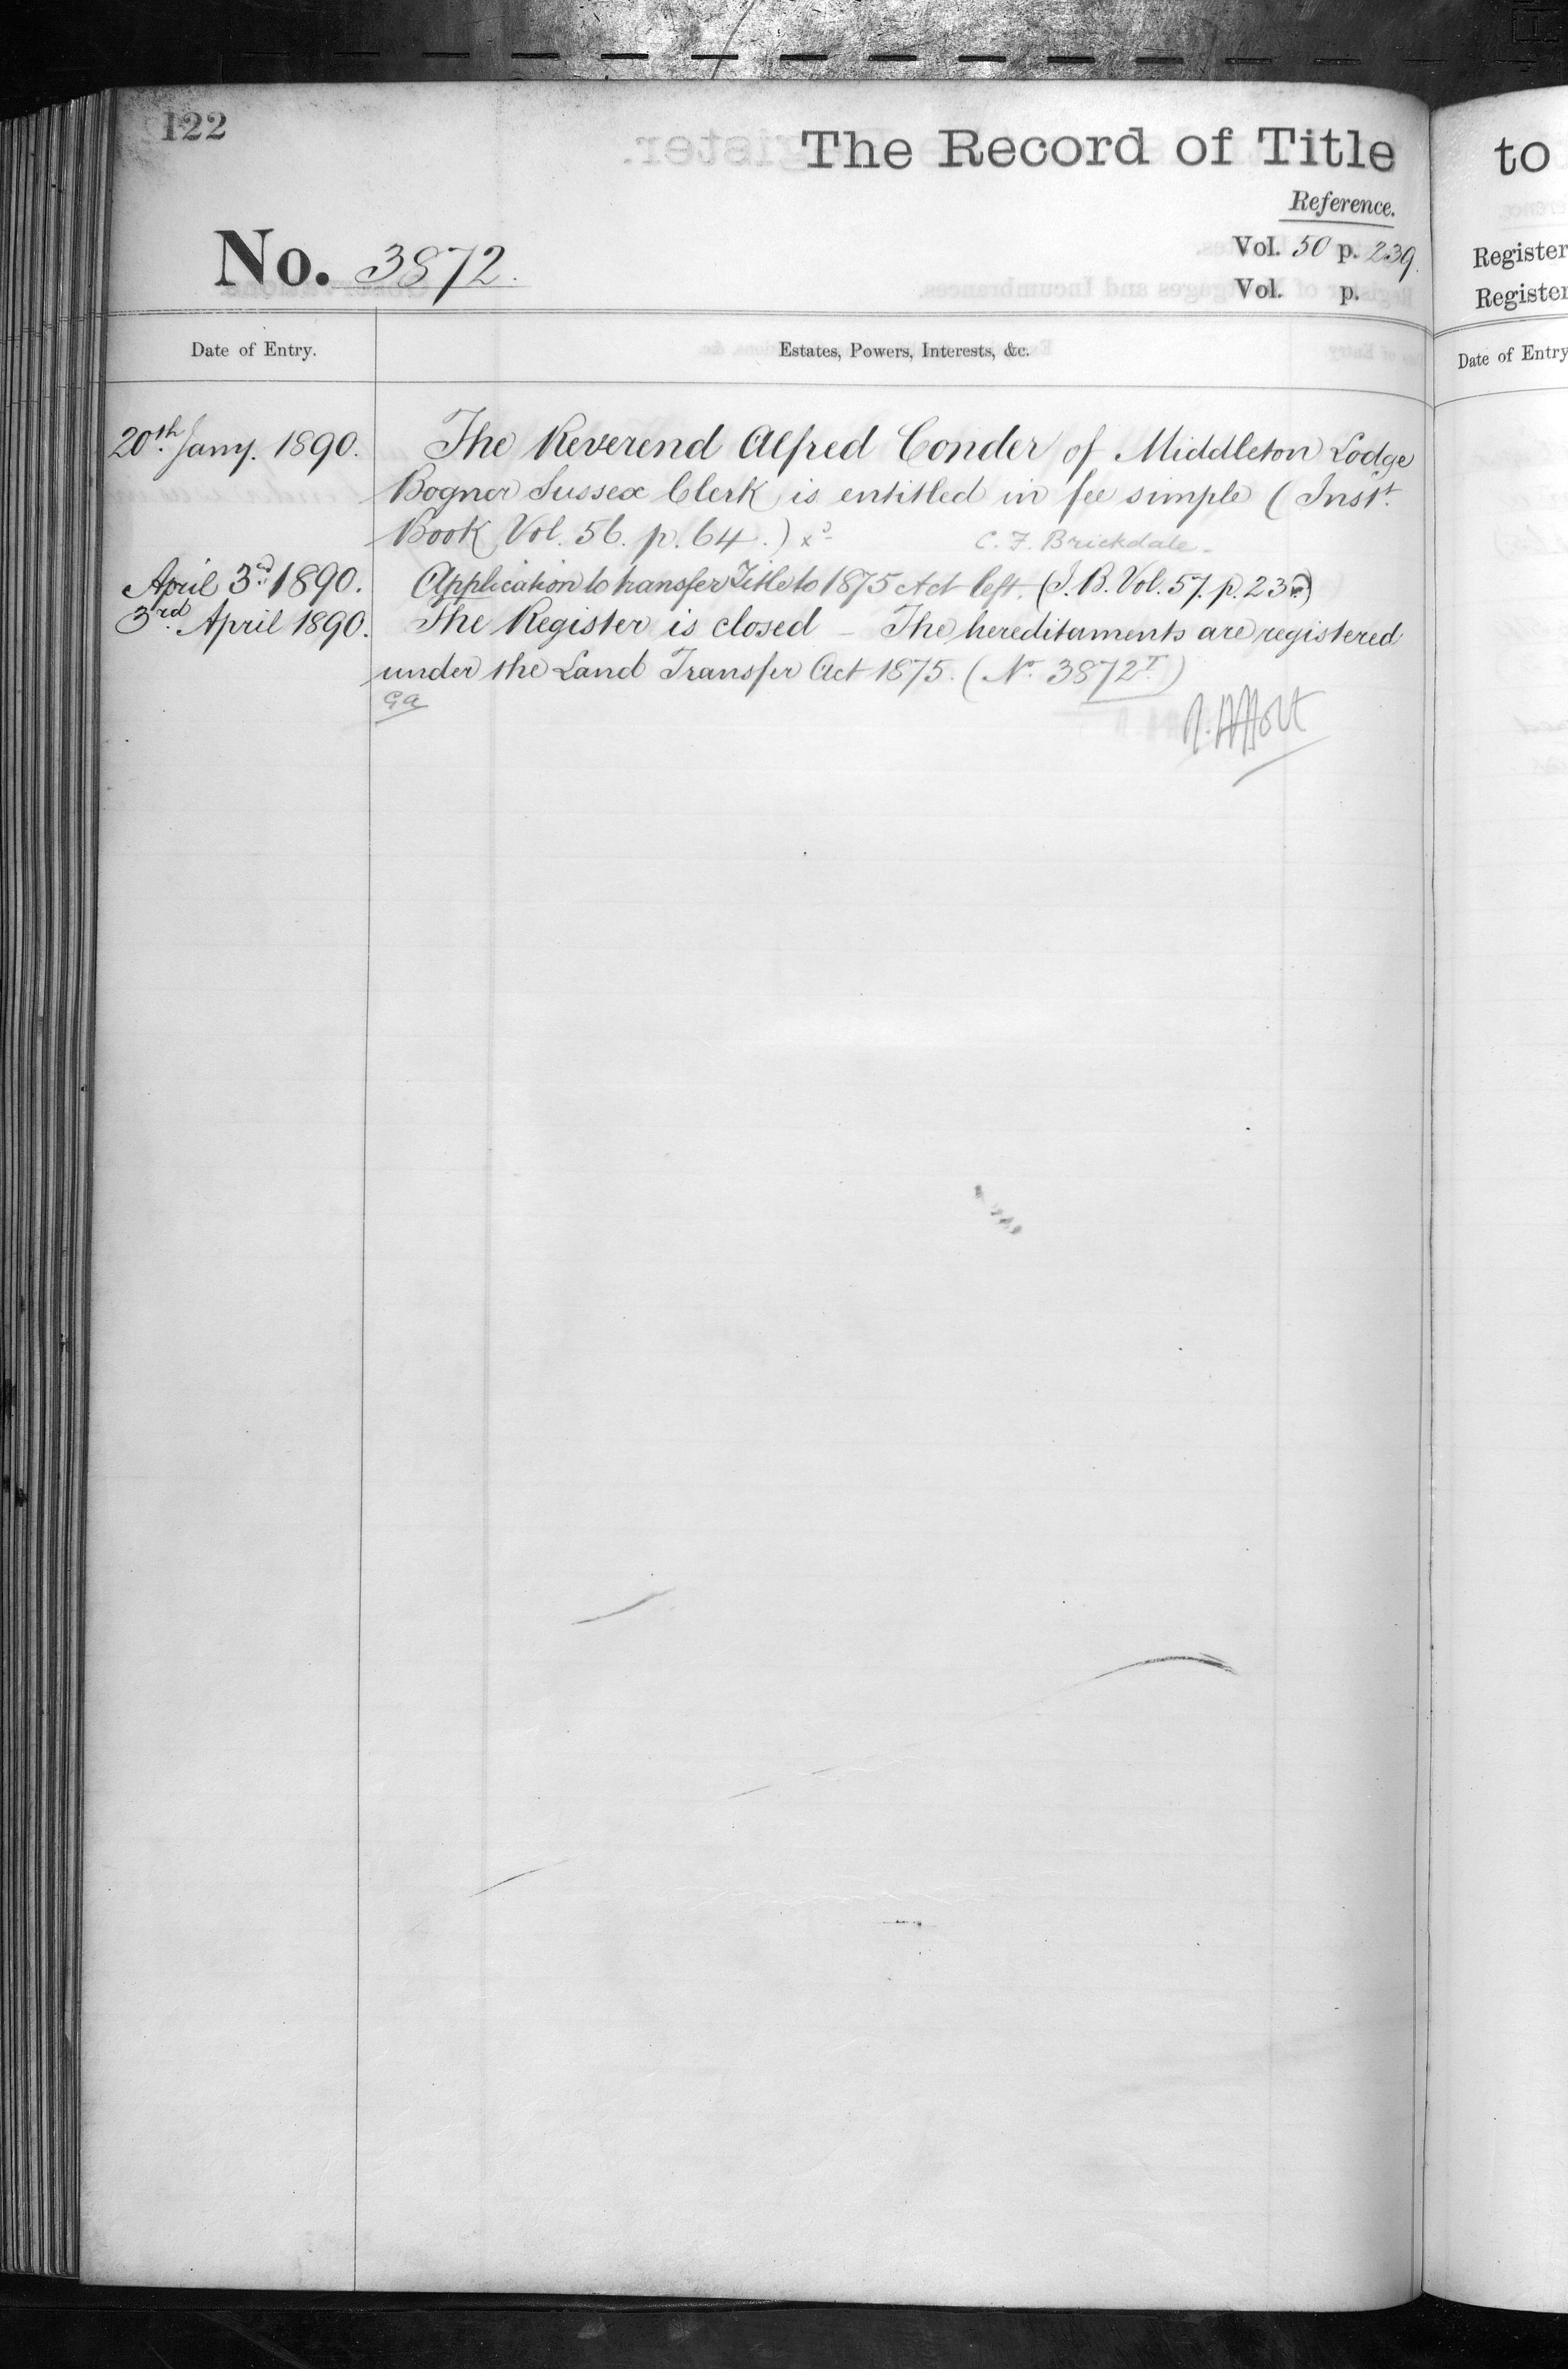 122
The Record of Title
Reference.
No. 3872.
Vol. 50 p. 239.
Vol. p.
Date of Entry.
Estates, Powers, Interests, &c.
20th Jany. 1890.
The Reverend Alfred Conder of Middleton Lodge
Bognor Sussex Clerk is entitled in fee simple (Inst.
Book Vol. 56. p. 64.)
C. F. Brickdale
April 3rd 1890.
Application to transfer Title to 1875 Act left. (I. B. Vol. 57. p.
3rd April 1890.
The Register is closed – The hereditaments are registered
under the Land Transfer Act 1875. (No. 3872T.)
to
Register
Register
Date of Entry